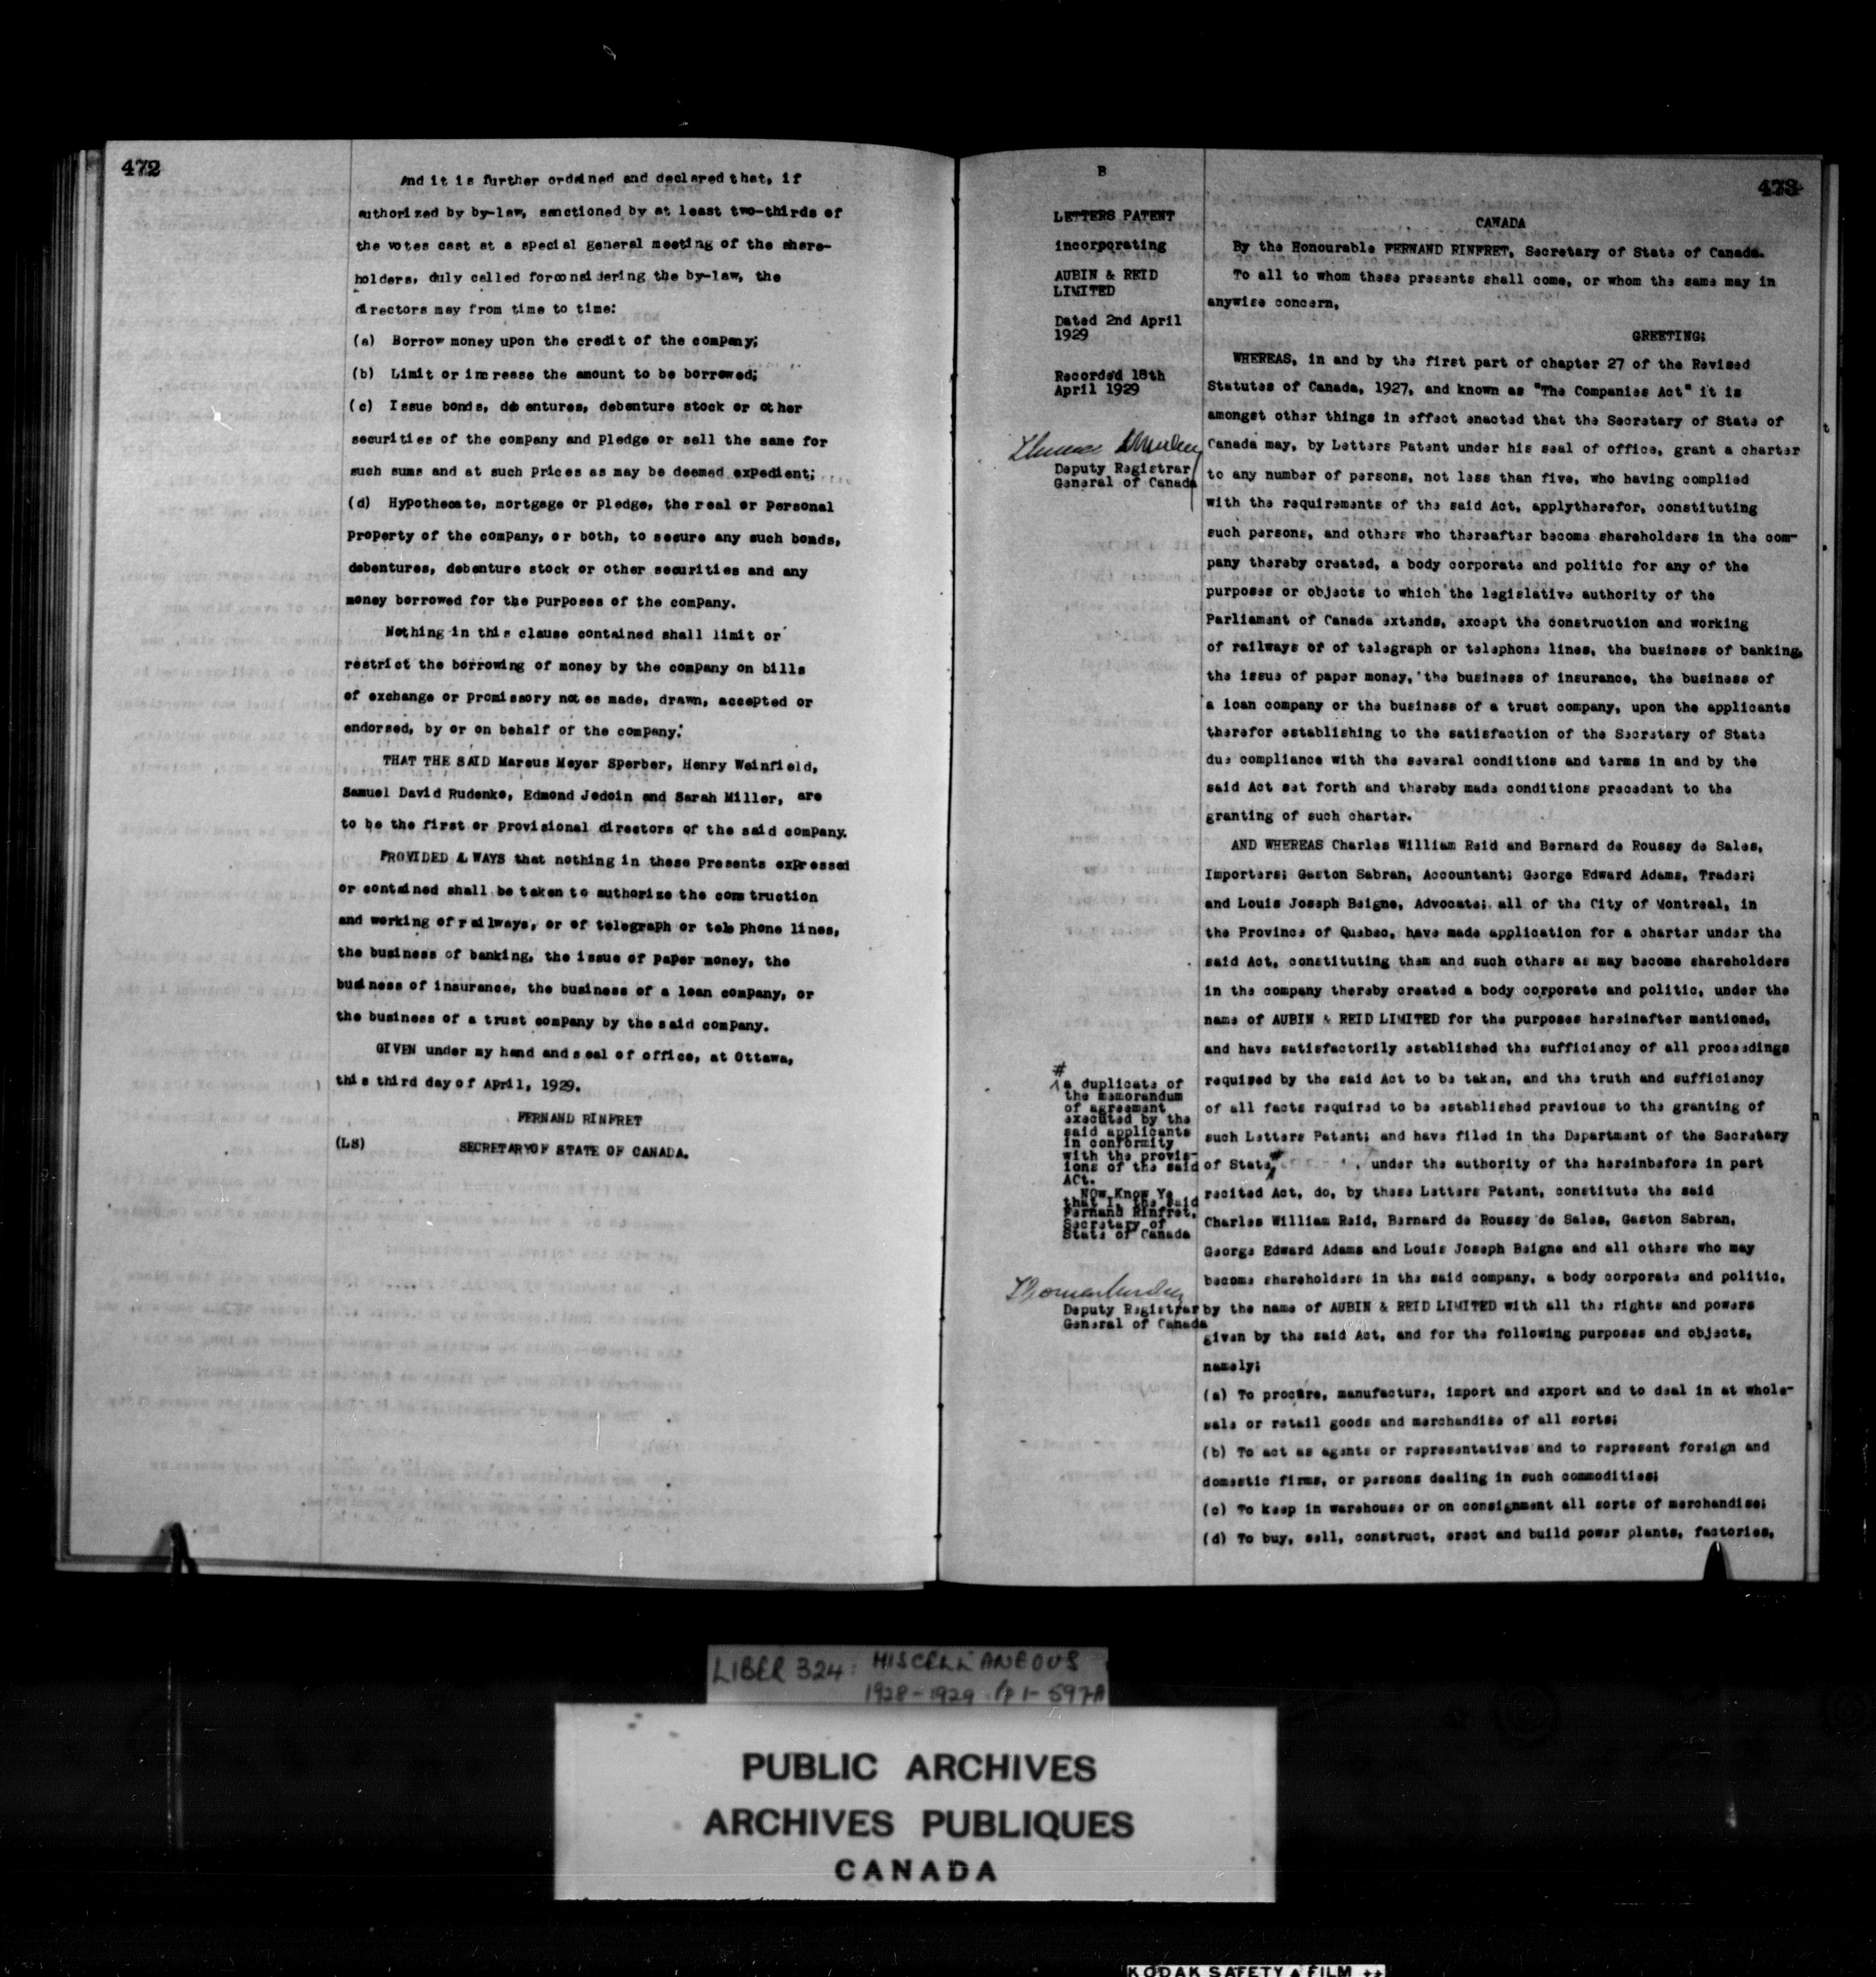 472
And it is further ordained and declared that, if
authorized by by-law, sanctioned by at least two-thirds of
the votes cast at a special general meeting of the share-
holders, duly called forconsidering the by-law, the
directors may from time to time:
(a) Borrow money upon the credit of the company;
(b) Limit or increase the amount to be borrowed;
(c) Issue bonds, debentures, debenture stock or other
securities of the company and pledge or sell the same for
such sums and at such prices as may be deemed expedient;
(d) Hypothecate, mortgage or pledge, the real or personal
property of the company, or both, to secure any such bonds,
debentures, debenture stock or other securities and any
money borrowed for the purposes of the company.
Nothing in this clause contained shall limit or
restrict the borrowing of money by the company on bills
of exchange or promissory notes made, drawn, accepted or
endorsed, by or on behalf of the company.
THAT THE SAID Marcus Meyer Sperber, Henry Weinfield,
Samuel David Rudenko, Edmond Jodoin and Sarah Miller, are
to be the first or provisional directors of the said company.
PROVIDED ALWAYS that nothing in these presents expressed
or contained shall be taken to authorize the construction
and working of railways, or of telegraph or telephone lines,
the business of banking, the issue of paper money, the
business of insurance, the business of a loan company, or
the business of a trust company by the said company.
GIVEN under my hand and seal of office, at Ottawa,
this third day of April, 1929.
FERNAND RINFRET
(LS) SECRETARY OF STATE OF CANADA.
B
473
LETTERS PATENT
incorporating
AUBIN & REID
LIMITED
Dated 2nd April
1929
Recorded 18th
April 1929
Deputy Registrar
General of Canada
CANADA
By the Honourable FERNAND RINFRET, Secretary of State of Canada.
To all to whom these presents shall come, or whom the same may in
anywise concern,
GREETING:
WHEREAS, in and by the first part of chapter 27 of the Revised
Statutes of Canada, 1927, and known as "The Companies Act" it is
amongst other things in effect enacted that the Secretary of State of
Canada may, by Letters Patent under his seal of office, grant a charter
to any number of persons, not less than five, who having complied
with the requirements of the said Act, applytherefor, constituting
such persons, and others who thereafter become shareholders in the com-
pany thereby created, a body corporate and politic for any of the
purposes or objects to which the legislative authority of the
Parliament of Canada extends, except the construction and working
of railways or of telegraph or telephone lines, the business of banking,
the issue of paper money, the business of insurance, the business of
a loan company or the business of a trust company, upon the applicants
therefor establishing to the satisfaction of the Secretary of State
due compliance with the several conditions and terms in and by the
said Act set forth and thereby made conditions precedent to the
granting of such charter.
AND WHEREAS Charles William Reid and Bernard de Roussy de Sales,
Importers; Gaston Sabran, Accountant; George Edward Adams, Trader;
and Louis Joseph Beigne, Advocate; all of the City of Montreal, in
the Province of Quebec, have made application for a charter under the
said Act, constituting them and such others as may become shareholders
in the company thereby created a body corporate and politic, under the
name of AUBIN & REID LIMITED for the purposes hereinafter mentioned,
and have satisfactorily established the sufficiency of all proceedings
required by the said Act to be taken, and the truth and sufficiency
of all facts required to be established previous to the granting of
such Letters Patent; and have filed in the Department of the Secretary
of State,# , under the authority of the hereinbefore in part
recited Act, do, by these Letters Patent, constitute the said
Charles William Reid, Bernard de Roussy de Sales, Gaston Sabran,
George Edward Adams and Louis Joseph Beigne and all others who may
become shareholders in the said company, a body corporate and politic,
by the name of AUBIN & REID LIMITED with all the rights and powers
given by the said Act, and for the following purposes and objects,
namely:
(a) To procure, manufacture, import and export and to deal in at whole-
sale or retail goods and merchandise of all sorts;
(b) To act as agents or representatives and to represent foreign and
domestic firms, or persons dealing in such commodities;
(c) To keep in warehouse or on consignment all sorts of merchandise;
(d) To buy, sell, construct, erect and build power plants, factories,
#
a duplicate of
the memorandum
of agreement
executed by the
said applicants
in conformity
with the provis-
ions of the said
Act.
NOw Know Ye
that I, the said
Fernand Rinfret,
Secretary of
State of Canada
Deputy Registrar
General of Canada
LIBER 324: MISCELLANEOUS
1928-1929 pp 1-597A
PUBLIC ARCHIVES
ARCHIVES PUBLIQUES
CANADA
KODAK SAFETY FILM